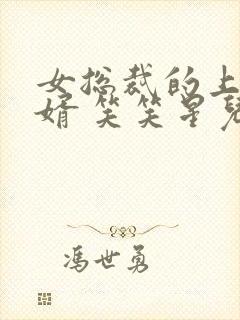 女总裁的上
婿 笑笑星儿
冯世勇